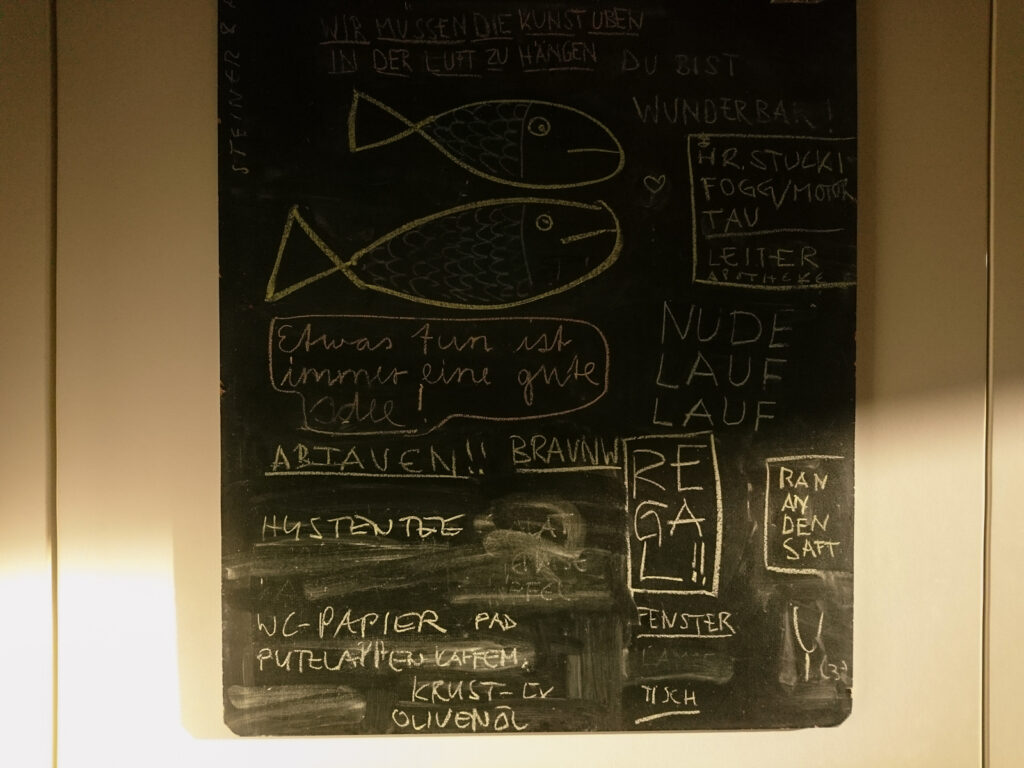 STEINER &
WIR MÜSSEN DIE KUNST ÜBEN
IN DER LUFT ZU HÄNGEN
DU BIST
WUNDERBAR!
HR. STUCKI
FOGG/MOTOR
TAU
LEITER
APOTHEKE
NUDE
LAUF
LAUF
Etwas tun ist
immer eine gute
Idee!
ABTAUEN!!
BRAUNW
RE
GA
L!!
RAN
AN
DEN
SAFT
HUSTENTEE
WC-PAPIER PAD
PUTZLAPPEN KAFFEM.
KRUST-
OLIVENÖL
FENSTER
LAMPE
TISCH